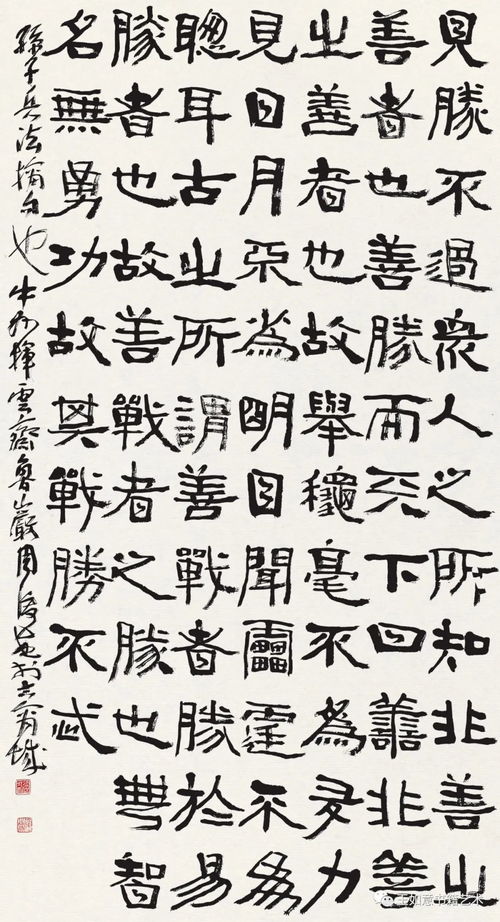 見勝不過衆人之所知非善之
善者也善勝而天下曰譱非善
之善者也故舉穐毫不為多力
見日月不為明目聞靁霆不為
聰耳古之所謂善戰者勝於易
勝者也故善戰者之勝也無智
名無勇功故其戰勝不忒
孫子兵法摘句也揮雲齋魯山巖周
王如意书籍艺术